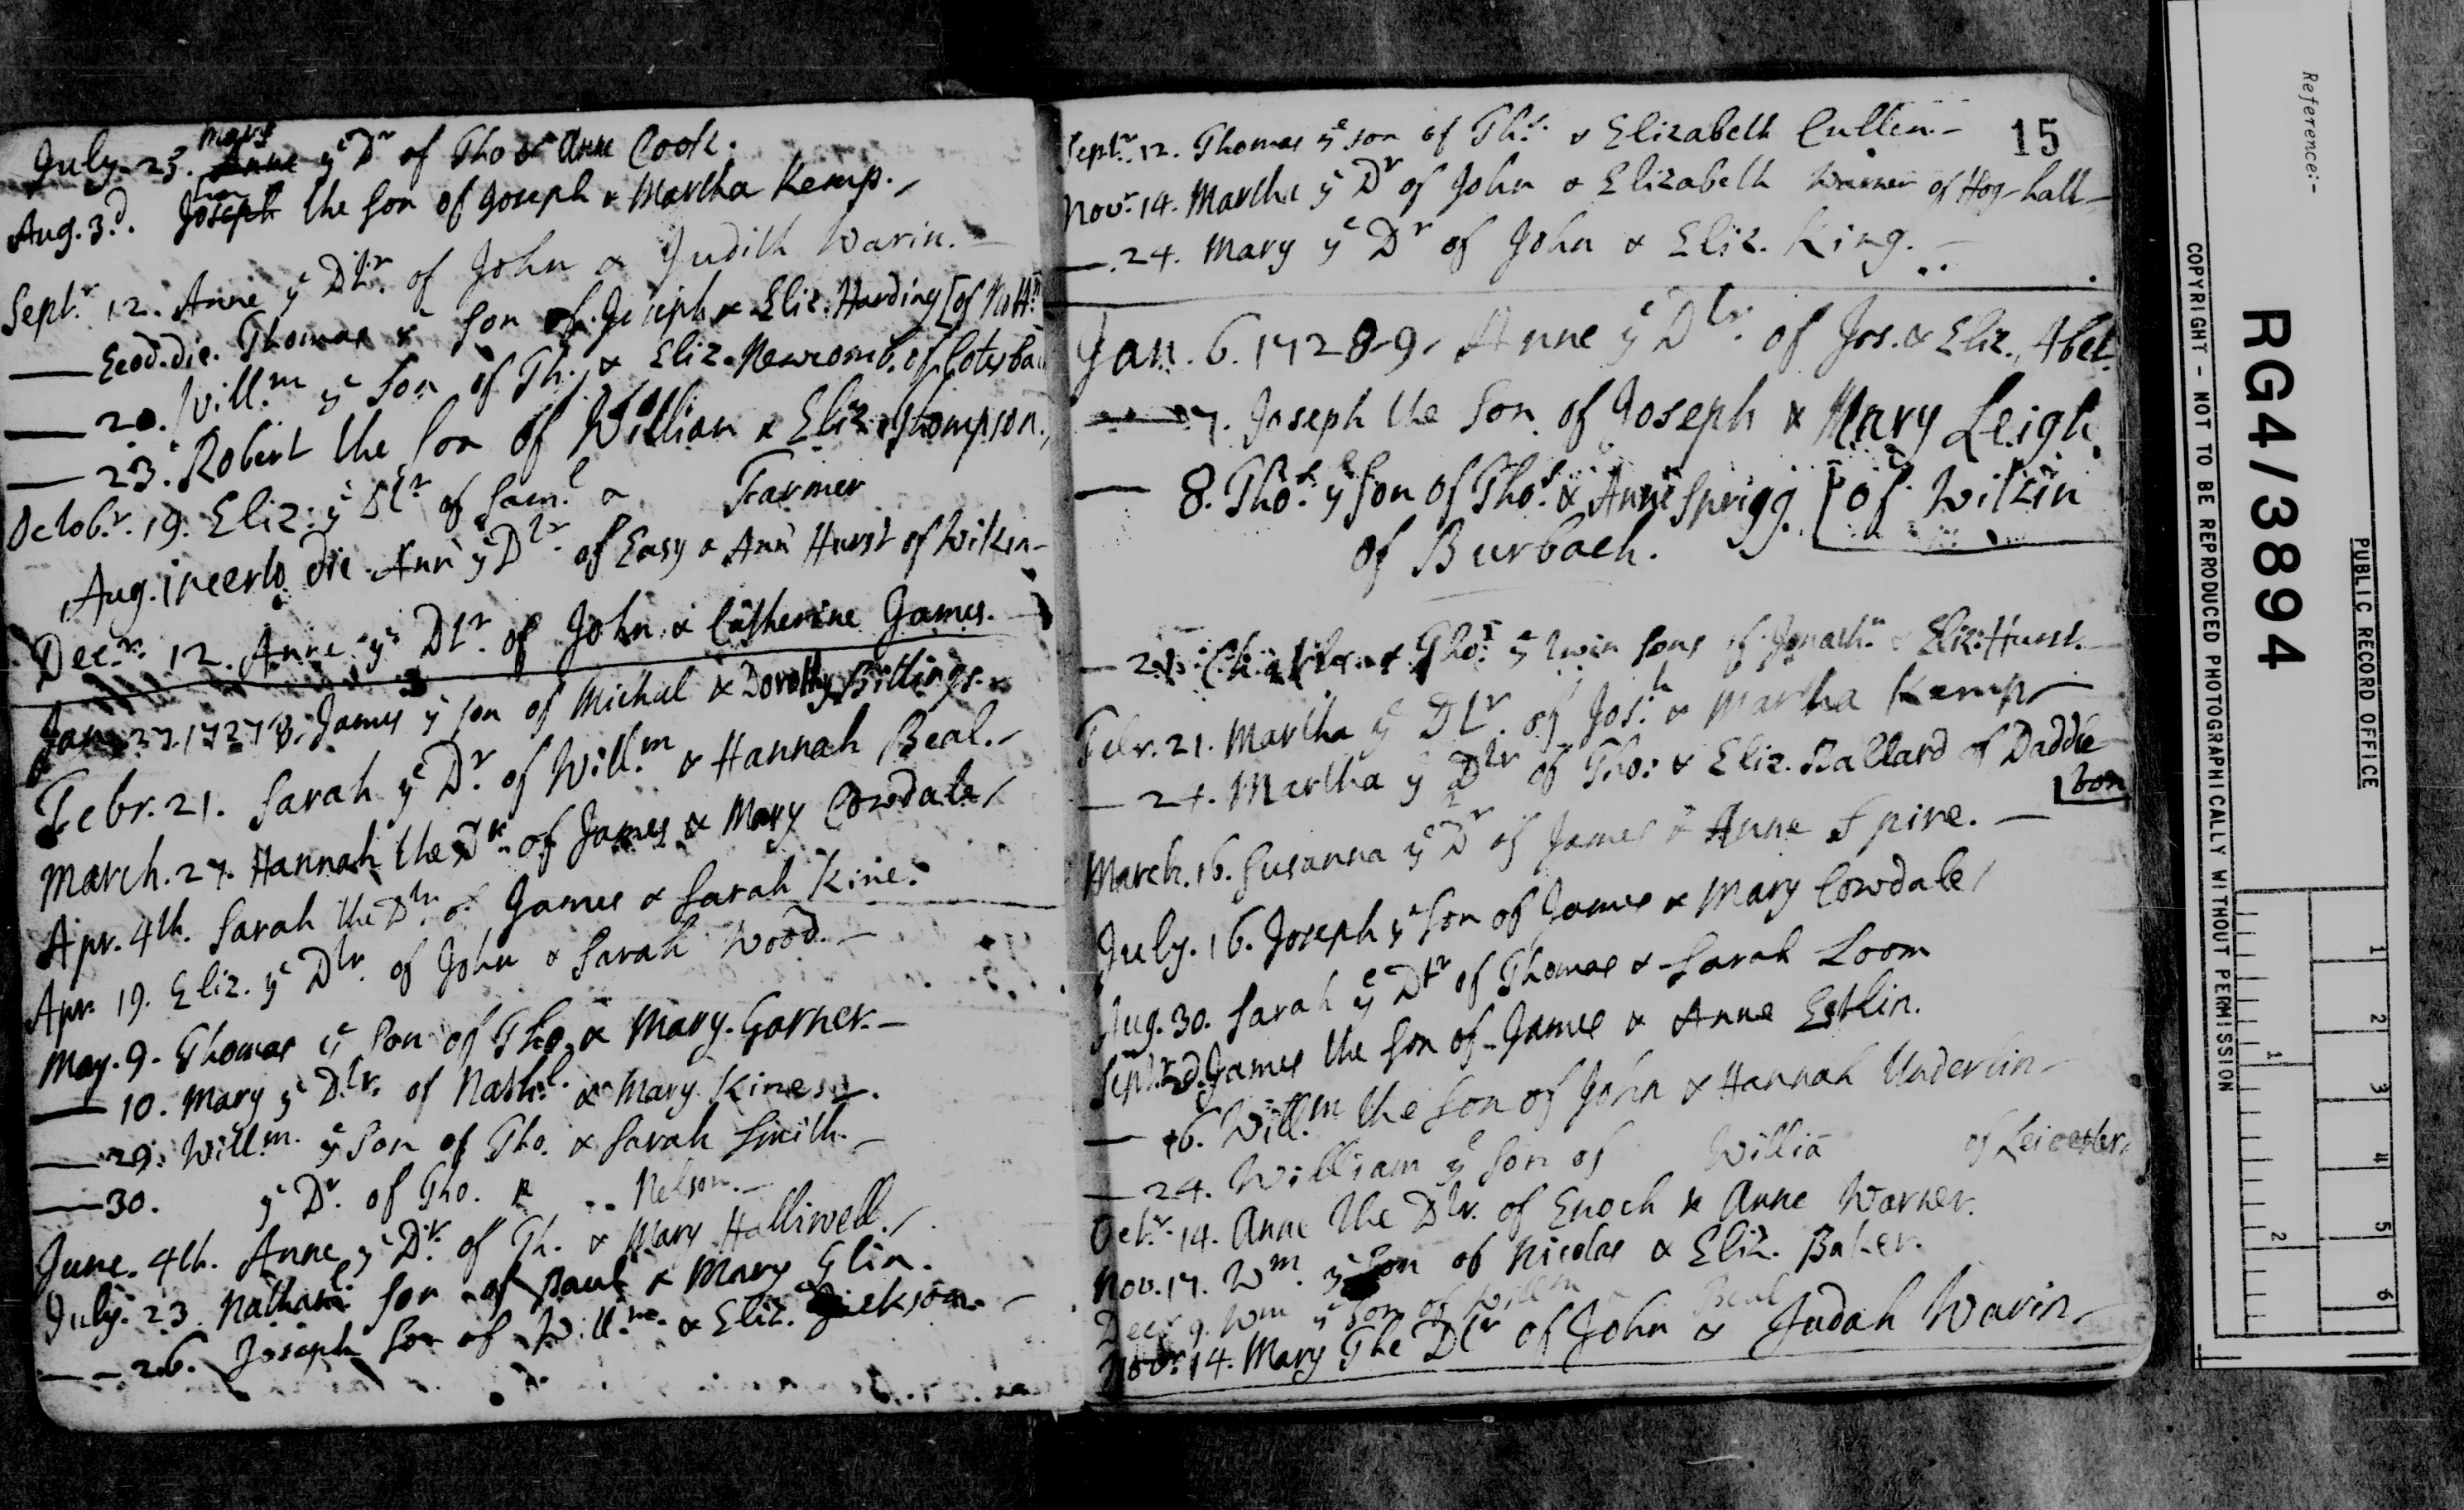 Mary
July. 23. Anne yᵉ Dʳ of Tho & Anne Cook.
Aug. 3ᵈ. Joseph the son of Joseph & Martha Kemp.
Septʳ 12. Anne yᵉ Dtʳ. of John & Judith Warin. —
— Eeod. die. Thomas yᵉ son of Joseph & Eliz. Harding [of Nottⁿ
— 20. Willᵐ yᵉ son of Th. & Eliz. Newcomb. of
— 23. Robert the son of William & Eliz. Thompson.
Octobʳ. 19. Eliz. yᵉ Dtʳ of Samˡ & Farmer
Aug. incerto die Ann yᵉ Dtʳ. of Easy & Ann Hurst of Wilkin —
Decʳ. 12. Anne yᵉ Dtʳ. of John & Catherine James.
Jan. 27. 1727/8. James yᵉ son of Michal & Dorothy Billings.
Febr. 21. Sarah yᵉ Dʳ. of Willᵐ & Hannah Beal.
March. 27. Hannah the Dʳ. of James & Mary Cowdale
Apr. 4th. Sarah the Dtʳ of James & Sarah Kine.
Apr. 19. Eliz. yᵉ Dtʳ. of John & Sarah Wood. —
May. 9. Thomas yᵉ son of Tho. & Mary. Garner. —
— 10. Mary yᵉ Dtʳ. of Nathˡ. & Mary Kines.
— 29. Willᵐ. yᵉ son of Tho. & Sarah Smith. —
— 30. yᵉ Dʳ. of Tho. & .. Nelson. —
June. 4th. Anne yᵉ Dʳ. of Th. & Mary Halliwell.
July. 23. Nathanˡ. son of Paul & Mary Glin.
— 26. Joseph son of Willᵐ. & Eliz. Jackson. —
15
Septʳ. 12. Thomas yᵉ son of Thˢ. & Elizabeth Cullen —
Novʳ. 14. Martha yᵉ Dʳ of John & Elizabeth Warner of Hog-hall —
— 24. Mary yᵉ Dʳ of John & Eliz. King. —
Jan. 6. 1728-9. Anne yᵉ Dtʳ. of Jos. & Eliz. Abel.
— 7. Joseph the Son of Joseph & Mary Leigh.
— 8. Thoˢ. yᵉ son of Thoˢ. & Anne Sprigg. [of Wilkin
of Burbach.
— & Thoˢ yᵉ twin sons of Jonathⁿ & Eliz. Hurst. —
Febr. 21. Martha yᵉ Dtʳ. of Josʰ & Martha Kemp —
— 24. Martha yᵉ Dtʳ of Tho: & Eliz. Ballard of Dadde
[ton
March. 16. Susanna yᵉ Dʳ of James & Anne Spire. —
July. 16. Joseph yᵉ son of James & Mary Cowdale
Aug. 30. Sarah yᵉ Dtʳ of Thomas & Sarah Loom
Septʳ 2d. James the son of James & Anne Estlin.
— 16. Willᵐ the son of John & Hannah Underlin —
— 24. William yᵉ son of Williā of Leicester
Octʳ. 14. Anne the Dtʳ. of Enoch & Anne Warner.
Nov. 17. Wᵐ. yᵉ son of Nicolas & Eliz. Baker.
Decʳ 9. Wm yᵉ son of Willᵐ & Beal
Novʳ. 14. Mary The Dtʳ of John & Judah Warin —
Reference:-
RG4/3894
PUBLIC RECORD OFFICE
COPYRIGHT - NOT TO BE REPRODUCED PHOTOGRAPHICALLY WITHOUT PERMISSION
1
2
3
4
5
6
1
2